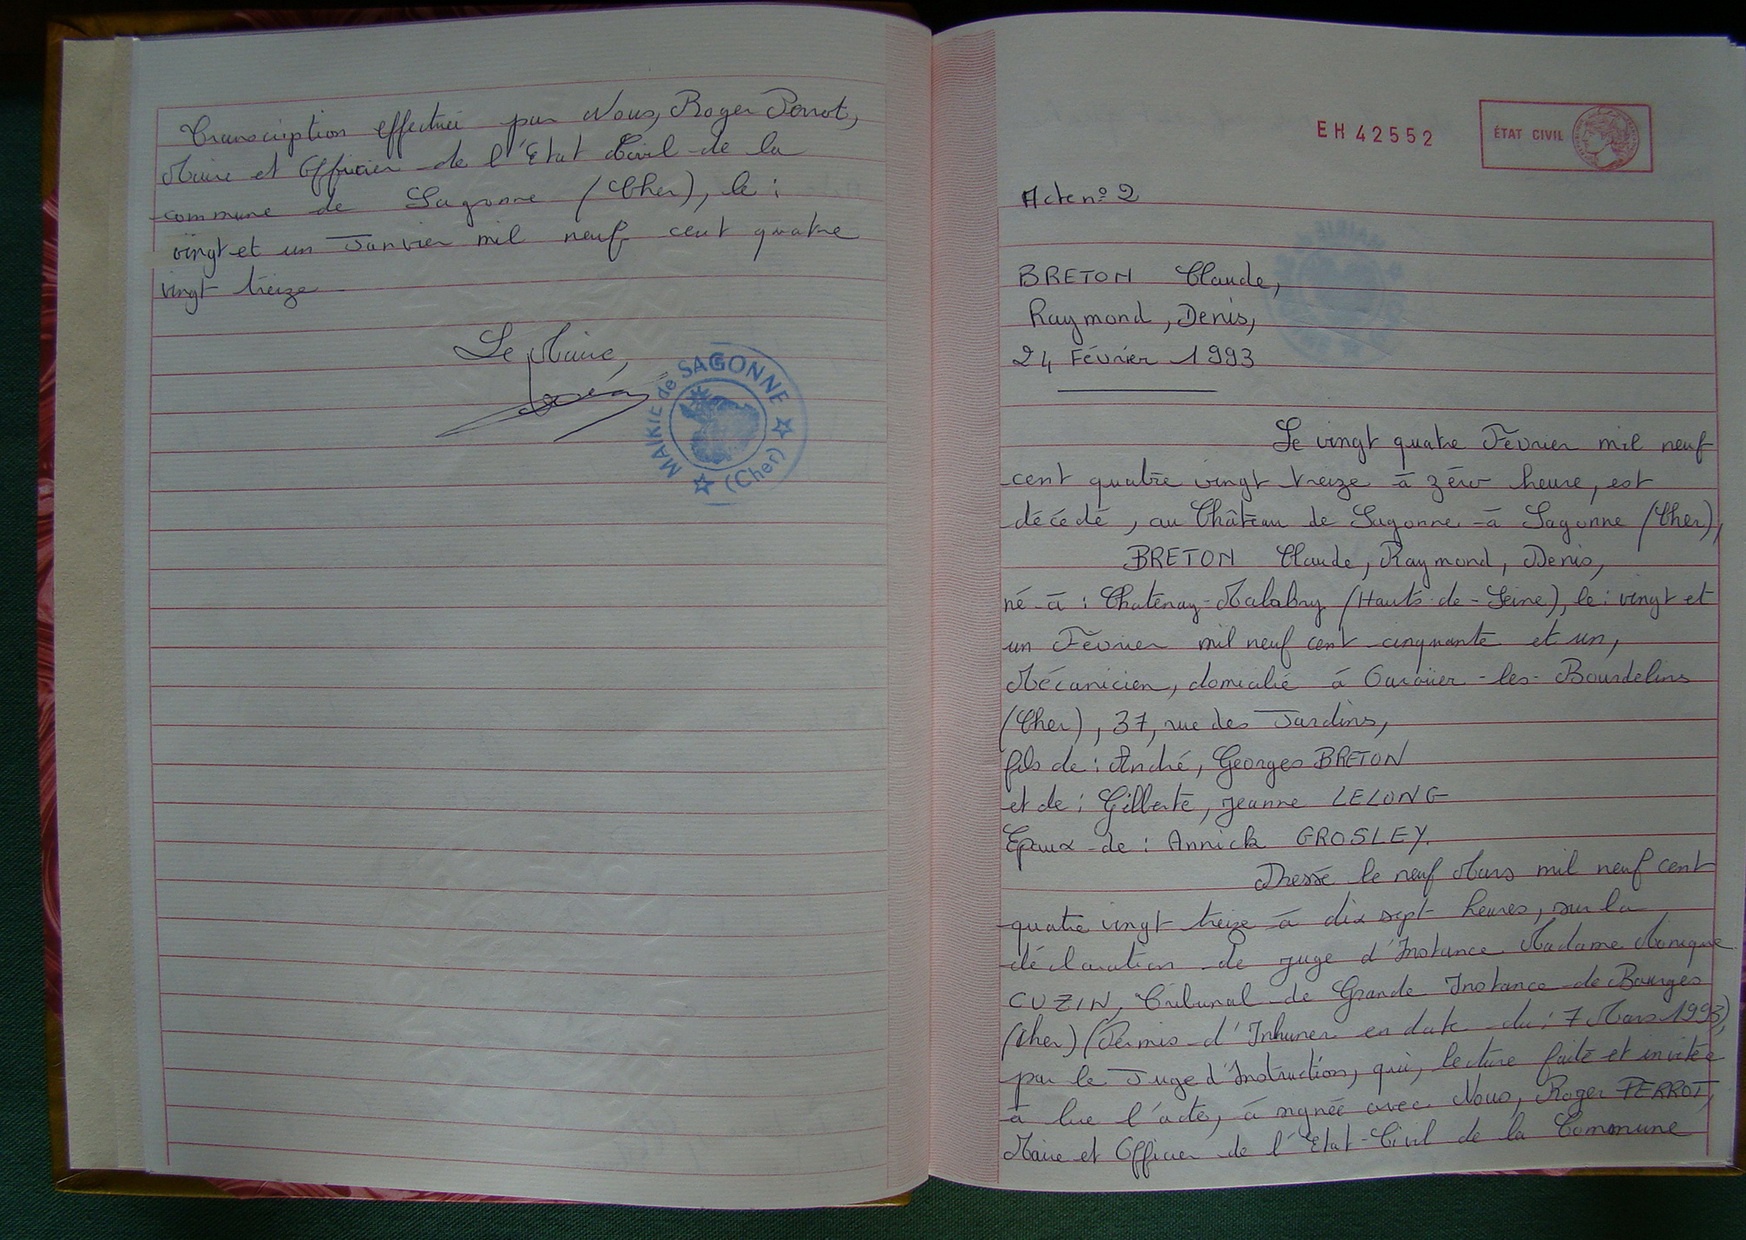 Transcription effectuée par Nous, Roger Perrot,
Maire et Officier de l'Etat Civil de la
commune de Sagonne (Cher), le :
vingt et un Janvier mil neuf cent quatre
vingt treize
Le Maire,
MAIRIE de SAGONNE
(Cher)
EH 42552
ÉTAT CIVIL
Acte nº 2
BRETON Claude,
Raymond, Denis,
24 Février 1993
Le vingt quatre Février mil neuf
cent quatre vingt treize à zéro heure, est
décédé, au Château de Sagonne à Sagonne (Cher),
BRETON Claude, Raymond, Denis,
né à : Chatenay-Malabry (Hauts-de-Seine), le : vingt et
un Février mil neuf cent cinquante et un,
Mécanicien, domicilié à -les-Bourdelins
(Cher), 37, rue des Jardins,
fils de : André, Georges BRETON
et de : Gilberte, Jeanne LELONG
Epoux de : Annick GROSLEY.
Dressé le neuf Mars mil neuf cent
quatre vingt treize à dix sept heures, sur la
déclaration de Juge d'Instance Madame Monique
CUZIN, Tribunal de Grande Instance de Bourges
(Cher) (Permis d'Inhumer en date du : 7 Mars 1993)
par le Juge d'Instruction, qui, lecture faite et invitée
à lire l'acte, à signée avec Nous, Roger PERROT,
Maire et Officier de l'Etat-Civil de la Commune